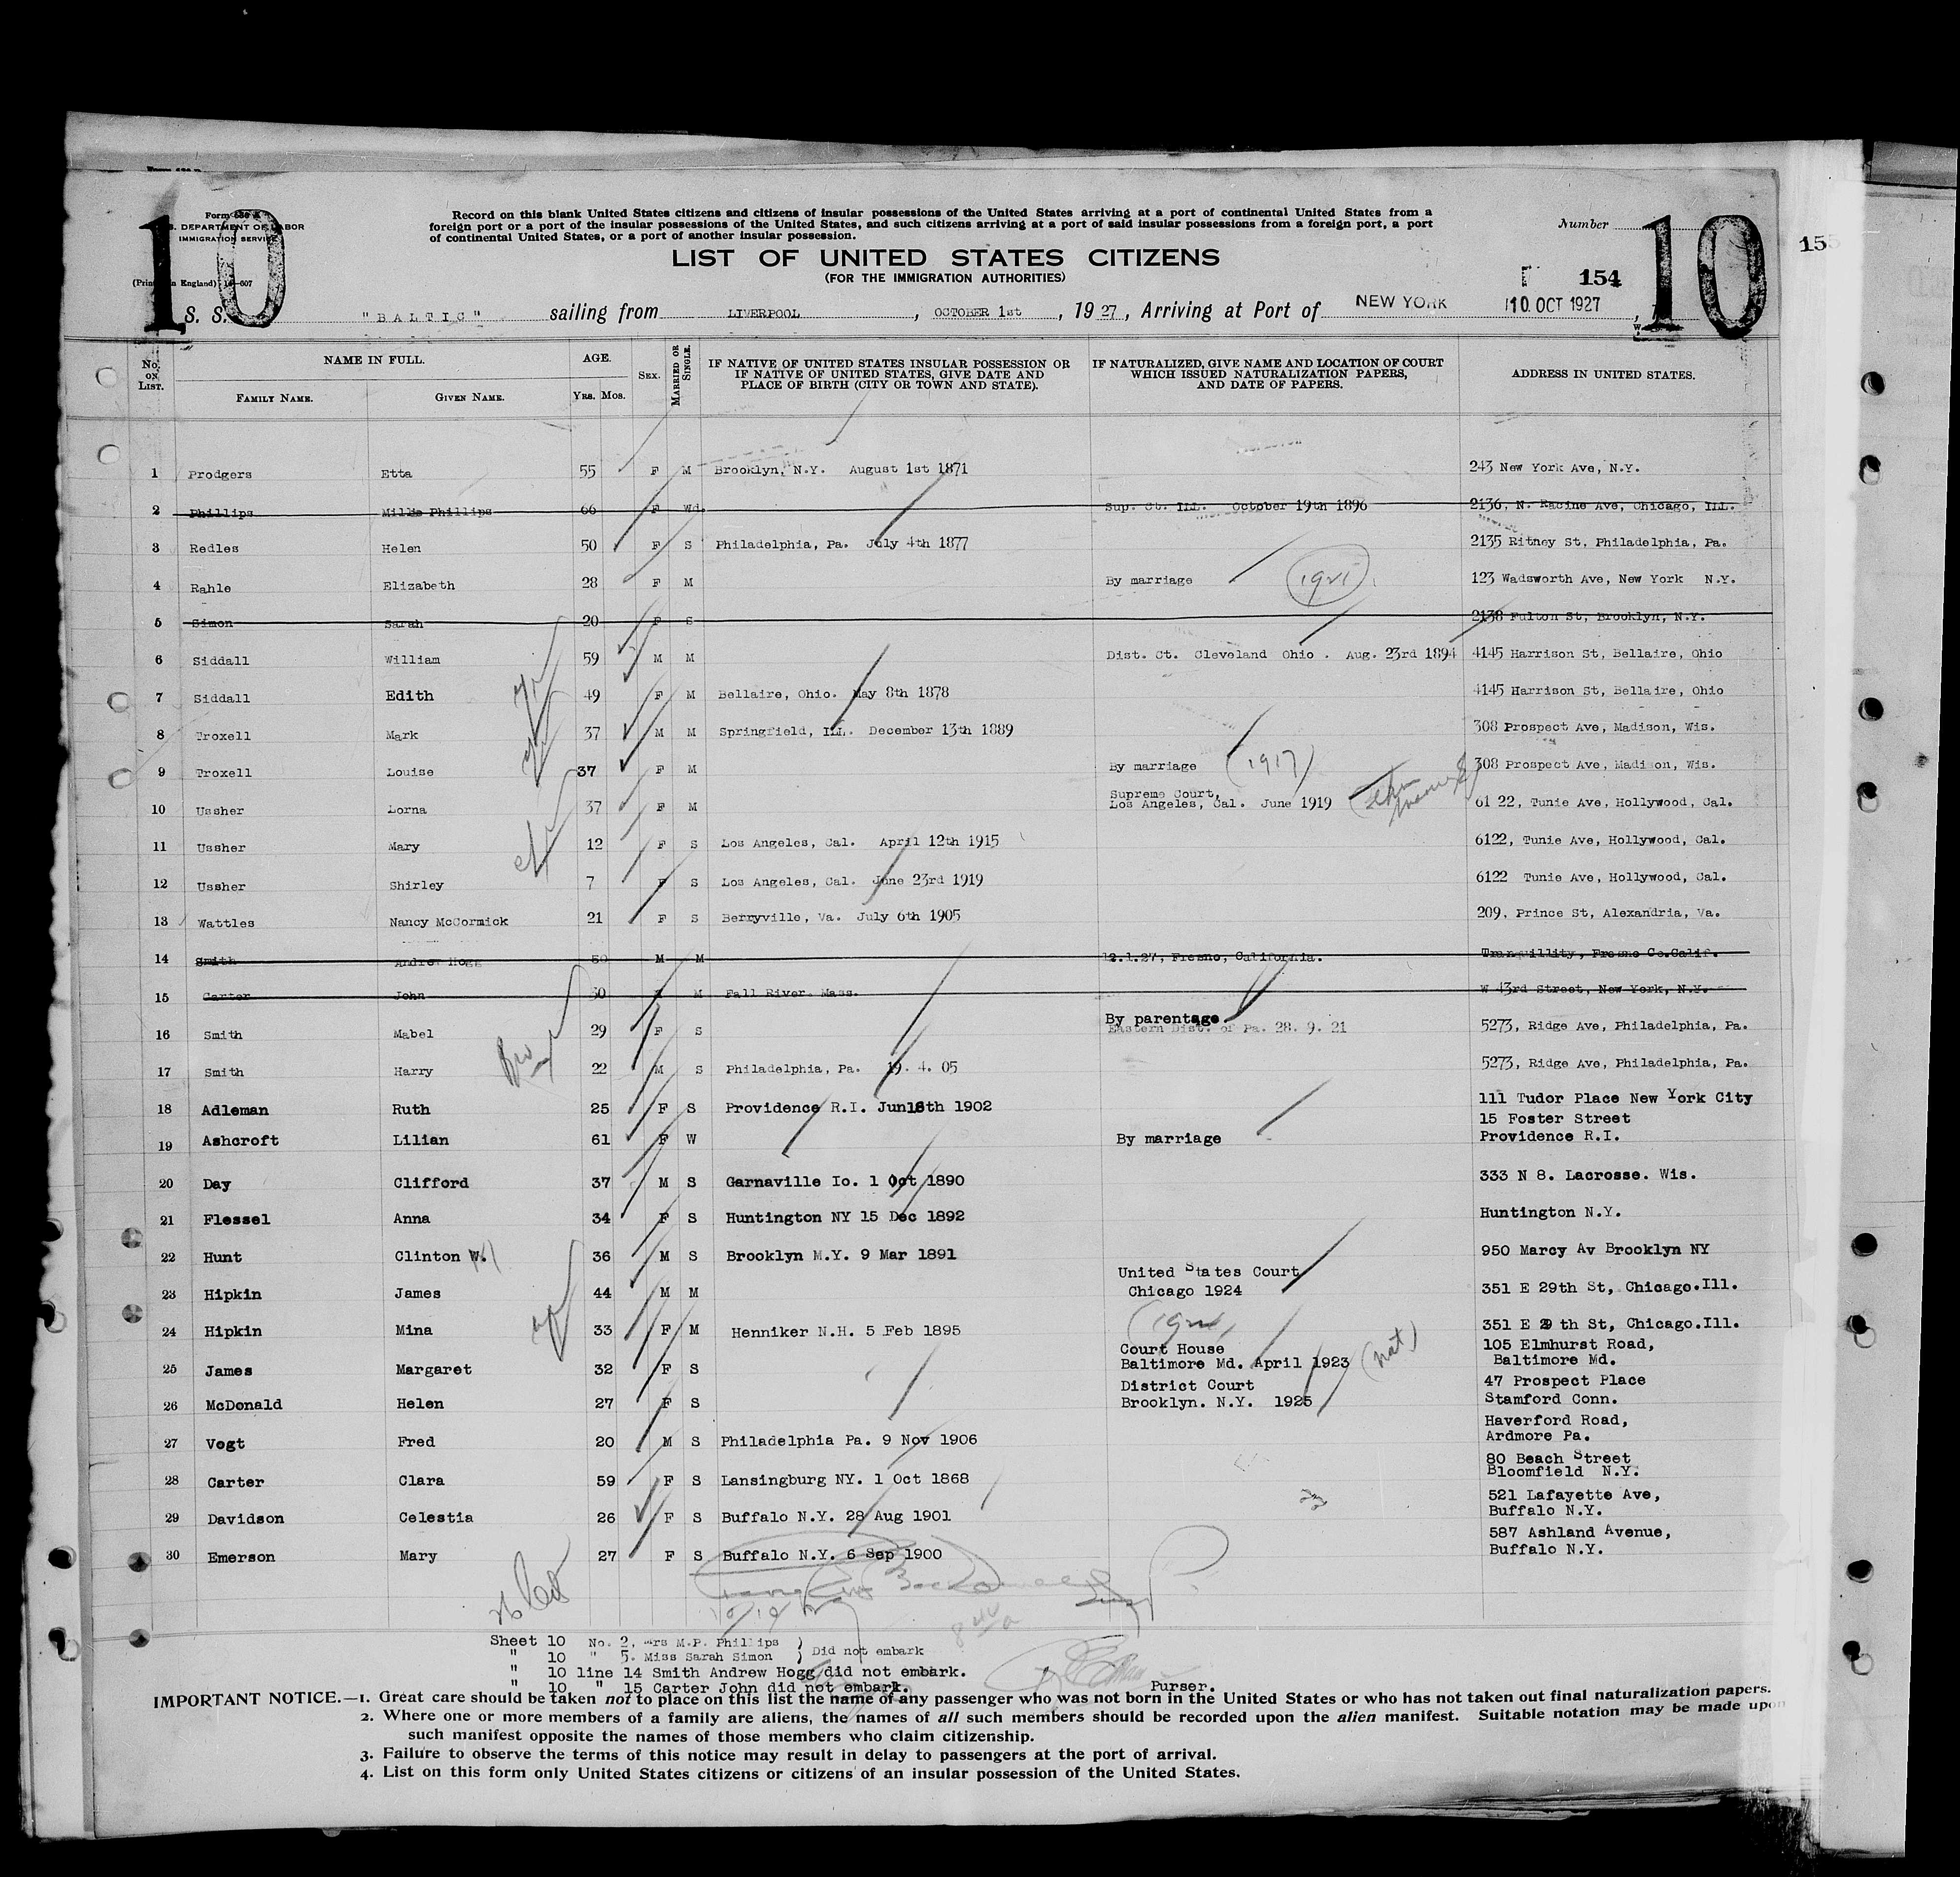 Form 630 A
U.S. DEPARTMENT OF LABOR
IMMIGRATION SERVICE
(Printed in England) 14—607
10
Record on this blank United States citizens and citizens of insular possessions of the United States arriving at a port of continental United States from a
foreign port or a port of the insular possessions of the United States, and such citizens arriving at a port of said insular possessions from a foreign port, a port
of continental United States, or a port of another insular possession.
Number
10
155
LIST OF UNITED STATES CITIZENS
(FOR THE IMMIGRATION AUTHORITIES)
154
S. S. "BALTIC" sailing from LIVERPOOL, OCTOBER 1st, 1927, Arriving at Port of NEW YORK 10 OCT 1927
No. ON LIST. NAME IN FULL. AGE. SEX. MARRIED OR SINGLE. IF NATIVE OF UNITED STATES INSULAR POSSESSION OR IF NATIVE OF UNITED STATES, GIVE DATE AND PLACE OF BIRTH (CITY OR TOWN AND STATE). IF NATURALIZED, GIVE NAME AND LOCATION OF COURT WHICH ISSUED NATURALIZATION PAPERS, AND DATE OF PAPERS. ADDRESS IN UNITED STATES.
FAMILY NAME. GIVEN NAME. YRS. MOS.
1 Prodgers Etta 55 F M Brooklyn, N.Y. August 1st 1871 243 New York Ave, N.Y.
2 Phillips Millie Phillips 66 F Wd. Sup. Ct. ILL. October 19th 1896 2136, N. Racine Ave, Chicago, ILL.
3 Redles Helen 50 F S Philadelphia, Pa. July 4th 1877 2135 Ritney St, Philadelphia, Pa.
4 Rahle Elizabeth 28 F M By marriage (1921) 123 Wadsworth Ave, New York N.Y.
5 Simon Sarah 20 F S 2138 Fulton St, Brooklyn, N.Y.
6 Siddall William 59 M M Dist. Ct. Cleveland Ohio . Aug. 23rd 1894 4145 Harrison St, Bellaire, Ohio
7 Siddall Edith 49 F M Bellaire, Ohio. May 8th 1878 4145 Harrison St, Bellaire, Ohio
8 Troxell Mark 37 M M Springfield, ILL. December 13th 1889 308 Prospect Ave, Madison, Wis.
9 Troxell Louise 37 F M By marriage (1917) 308 Prospect Ave, Madison, Wis.
10 Ussher Lorna 37 F M Supreme Court, Los Angeles, Cal. June 1919 61 22, Tunie Ave, Hollywood, Cal.
11 Ussher Mary 12 F S Los Angeles, Cal. April 12th 1915 6122, Tunie Ave, Hollywood, Cal.
12 Ussher Shirley 7 F S Los Angeles, Cal. June 23rd 1919 6122 Tunie Ave, Hollywood, Cal.
13 Wattles Nancy McCormick 21 F S Berryville, Va. July 6th 1905 209, Prince St, Alexandria, Va.
14 Smith Andrew Hogg 50 M M 12.1.27, Fresno, California. Tranquillity, Fresno Co.Calif.
15 Carter John 30 M Fall River Mass. W 43rd Street, New York, N.Y.
16 Smith Mabel 29 F S By parentage Eastern Dist. of Pa. 28. 9. 21 5273, Ridge Ave, Philadelphia, Pa.
17 Smith Harry 22 M S Philadelphia, Pa. 19. 4. 05 5273, Ridge Ave, Philadelphia, Pa.
18 Adleman Ruth 25 F S Providence R.I. Jun 16th 1902 111 Tudor Place New York City
19 Ashcroft Lilian 61 F W By marriage 15 Foster Street Providence R.I.
20 Day Clifford 37 M S Garnaville Io. 1 Oct 1890 333 N 8. Lacrosse. Wis.
21 Flessel Anna 34 F S Huntington NY 15 Dec 1892 Huntington N.Y.
22 Hunt Clinton W. 36 M S Brooklyn M.Y. 9 Mar 1891 950 Marcy Av Brooklyn NY
23 Hipkin James 44 M M United States Court Chicago 1924 351 E 29th St, Chicago.Ill.
24 Hipkin Mina 33 F M Henniker N.H. 5 Feb 1895 351 E 29 th St, Chicago.Ill.
25 James Margaret 32 F S Court House Baltimore Md. April 1923 (nat) 105 Elmhurst Road, Baltimore Md.
26 McDonald Helen 27 F S District Court Brooklyn. N.Y. 1925 47 Prospect Place Stamford Conn.
27 Vogt Fred 20 M S Philadelphia Pa. 9 Nov 1906 Haverford Road, Ardmore Pa.
28 Carter Clara 59 F S Lansingburg NY. 1 Oct 1868 80 Beach Street Bloomfield N.Y.
29 Davidson Celestia 26 F S Buffalo N.Y. 28 Aug 1901 521 Lafayette Ave, Buffalo N.Y.
30 Emerson Mary 27 F S Buffalo N.Y. 6 Sep 1900 587 Ashland Avenue, Buffalo N.Y.
Sheet 10 No. 2, Mrs M.P. Phillips ) Did not embark
" 10 " 5. Miss Sarah Simon )
" 10 line 14 Smith Andrew Hogg did not embark.
" 10 " 15 Carter John did not embark.
Purser.
IMPORTANT NOTICE.—1. Great care should be taken not to place on this list the name of any passenger who was not born in the United States or who has not taken out final naturalization papers.
2. Where one or more members of a family are aliens, the names of all such members should be recorded upon the alien manifest. Suitable notation may be made upon
such manifest opposite the names of those members who claim citizenship.
3. Failure to observe the terms of this notice may result in delay to passengers at the port of arrival.
4. List on this form only United States citizens or citizens of an insular possession of the United States.